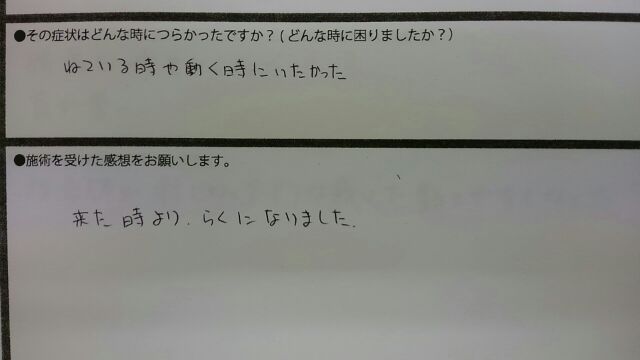 ●その症状はどんな時につらかったですか？(どんな時に困りましたか？)
ねている時や動く時にいたかった
●施術を受けた感想をお願いします。
来た時より、らくになりました。